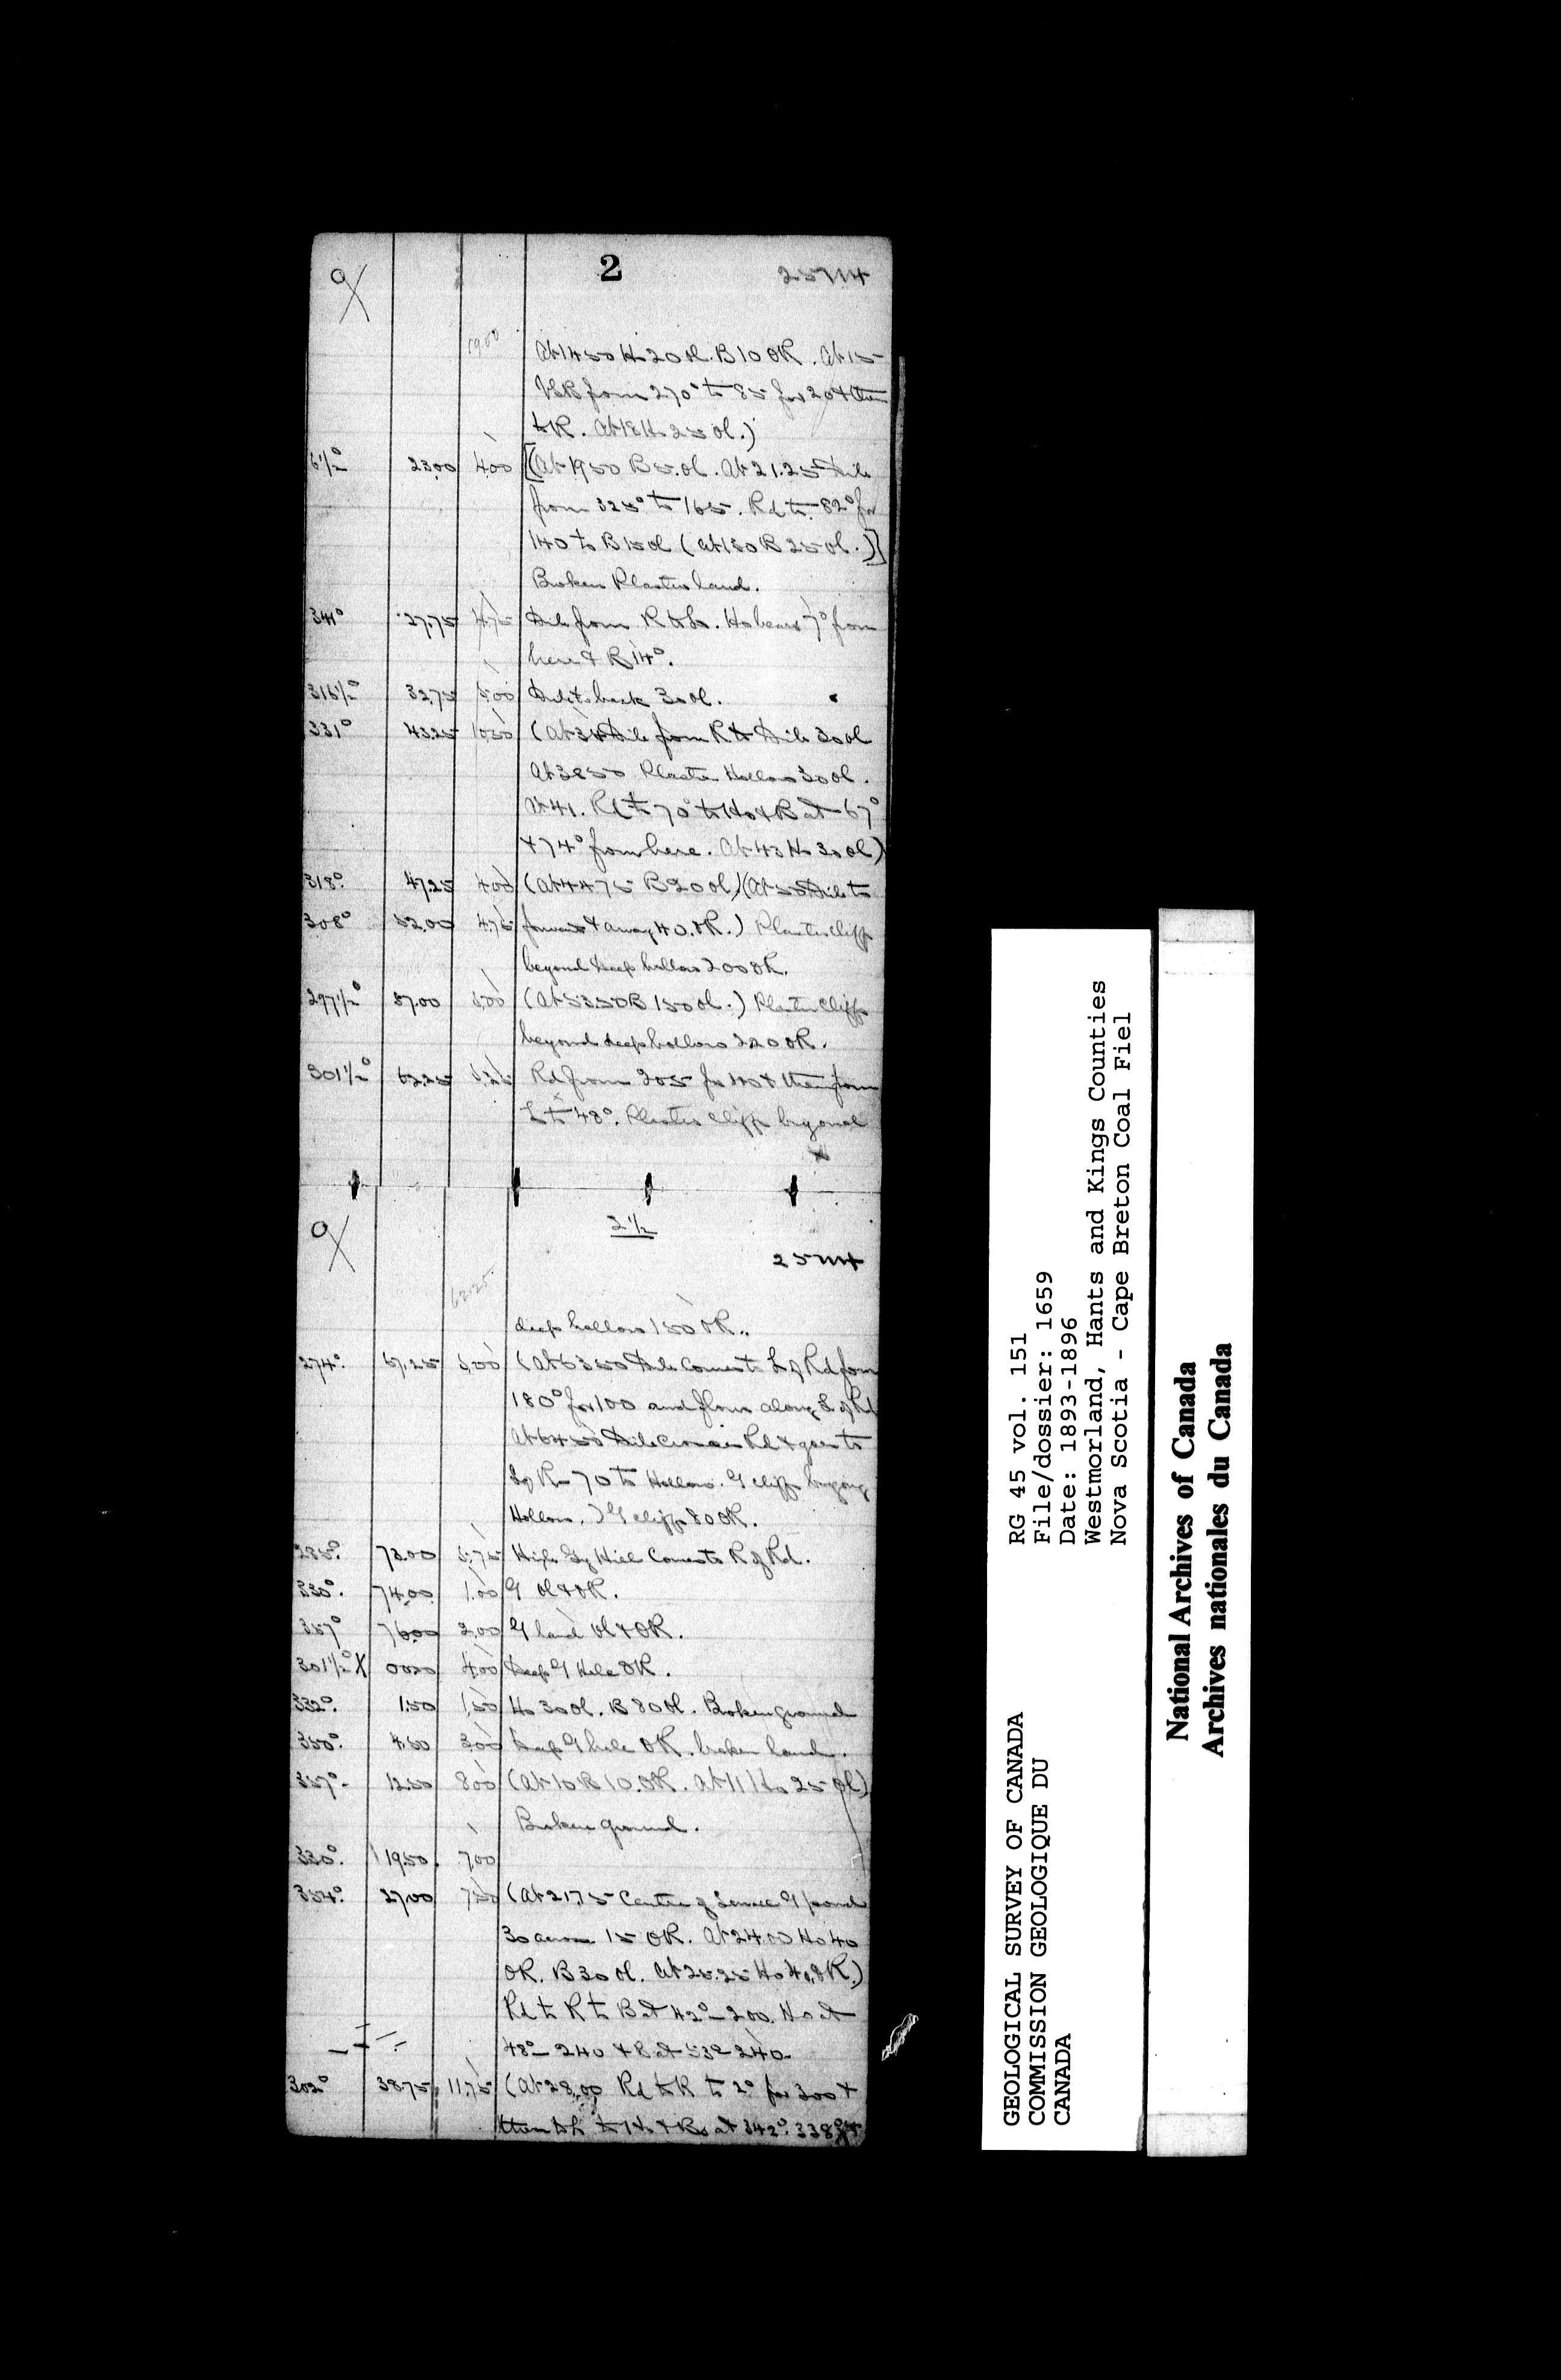 2
25 M4
19.00
At 1450 Ho 20 OL. B 10 OR. At 15
from 270° to 85 for 20 & then
to R. At 18 Ho 25 OL.)
6 1/2° 23.00 4.00 [(At 1950 B 5. OL. At 21.25
from 325° to 165. Rd to 82° for
140 to B 15 OL (At 130 B 25 OL.)]
Broken Plaster land.
341° 27.75 4.75 from R to L. Ho bears 7° from
here & B 14°.
316 1/2° 32.75 5.00 back 30 OL.
331° 43.25 10.50 (At 34 from R to 30 OL
At 3850 Plaster Hollow 30 OL.
At 41. Rd to 70° to Ho & B at 67°
& 74° from here. At 43 Ho 30 OL)
318° 47.25 4.00 (At 4475 B 20 OL) (At 50 to
308° 52.00 4.75 forward & away 40. OR.) Plaster Cliffs
beyond deep hollow 200 OR.
297 1/2° 57.00 5.00 (At 5350 B 150 OL.) Plaster Cliffs
beyond deep hollow 220 OR.
301 1/2° 62.25 5.25 Rd from 205 for 40 & then from
L to 48°. Plaster Cliffs beyond
2 1/2
25 M4
62.25
deep hollow 150 OR.
274° 67.25 5.00 (At 6350 comes to L of Rd from
180° for 100 and flows along L of Rd
At 6450 crosses Rd & goes to
70 to Hollow. G cliffs
Hollow.) G cliffs 80 OR.
285° 73.00 5.75 High Hill Comes to R of Rd.
330° 74.00 1.00 G OL & OR.
357° 76.00 2.00 G land OL & OR.
301 1/2° X 00.00 4.00 Deep G Hole OR.
332° 1.50 1.50 Ho 30 OL. B 80 OL. Broken ground
350° 4.50 3.00 Deep G hole OR. broken land.
357° 12.50 8.00 (At 10 B 10. OR. At 11 Ho 25 OL)
Broken ground.
330° 19.50 7.00
354° 27.00 7.50 (At 21.75 Centre of Small G pond
30 across 15 OR. At 24.00 Ho 40
OR. B 30 OL. At 25.25 Ho 40. OR.)
Rd to R to B at 42° - 200. Ho at
48° - 240 & B at 53° 240.
302° 38.75 11.75 (At 28.00 Rd to R to 2° for 300 &
then to L to Ho & Bs at 342°. 338° &
GEOLOGICAL SURVEY OF CANADA
COMMISSION GEOLOGIQUE DU
CANADA
RG 45 vol. 151
File/dossier: 1659
Date: 1893-1896
Westmorland, Hants and Kings Counties
Nova Scotia - Cape Breton Coal Fiel
National Archives of Canada
Archives nationales du Canada